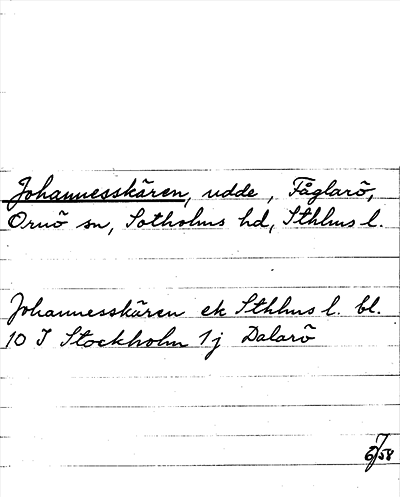 Johannesskären, udde, Fåglarö,
Ornö sn, Sotholms hd, Sthlms l.
Johannesskären ek Sthlms l. bl.
10 I Stockholm 1j Dalarö
6/7 58